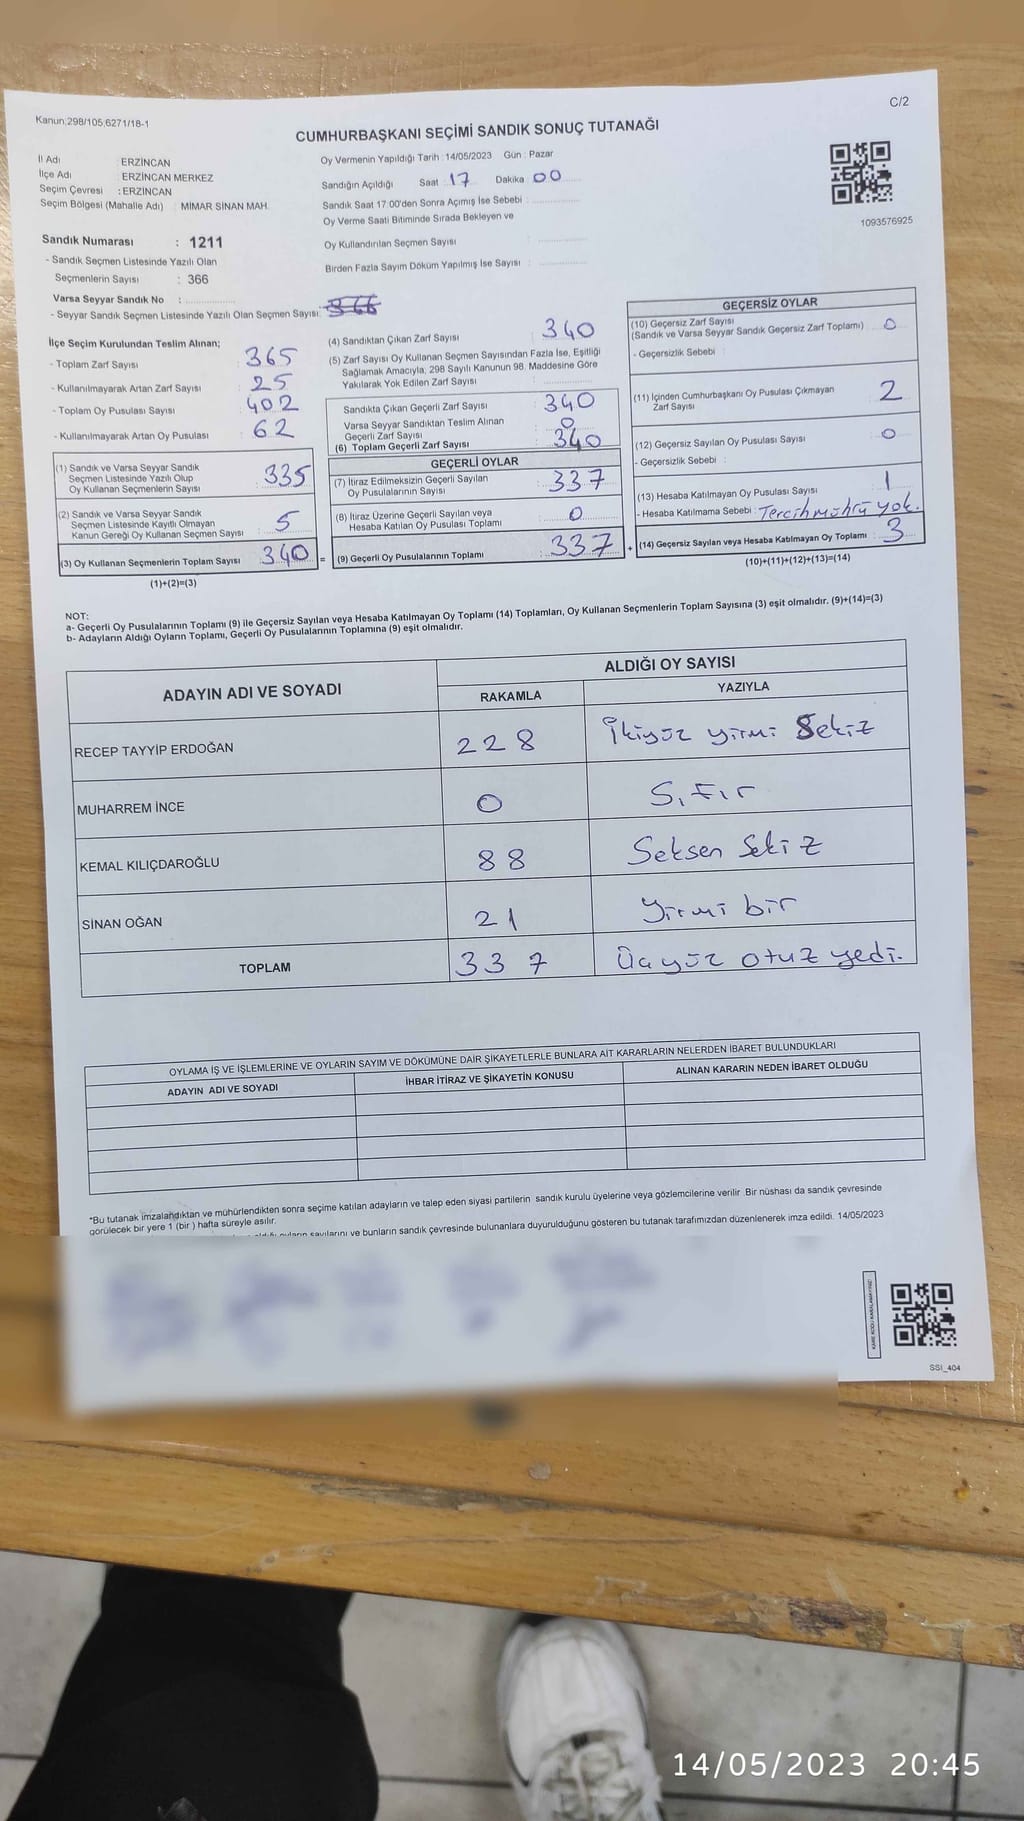 C/2
Kanun:298/105,6271/18-1
CUMHURBAŞKANI SEÇİMİ SANDIK SONUÇ TUTANAĞI
İl Adı : ERZİNCAN
İlçe Adı : ERZİNCAN MERKEZ
Seçim Çevresi : ERZİNCAN
Seçim Bölgesi (Mahalle Adı) : MİMAR SİNAN MAH.
Oy Vermenin Yapıldığı Tarih : 14/05/2023 Gün : Pazar
Sandığın Açıldığı Saat : 17 Dakika : 00
Sandık Saat 17:00'den Sonra Açımış İse Sebebi :
Oy Verme Saati Bitiminde Sırada Bekleyen ve
Oy Kullandırılan Seçmen Sayısı :
Birden Fazla Sayım Döküm Yapılmış İse Sayısı :
1093576925
Sandık Numarası : 1211
- Sandık Seçmen Listesinde Yazılı Olan
Seçmenlerin Sayısı : 366
Varsa Seyyar Sandık No :
- Seyyar Sandık Seçmen Listesinde Yazılı Olan Seçmen Sayısı: 366
İlçe Seçim Kurulundan Teslim Alınan;
- Toplam Zarf Sayısı : 365
- Kullanılmayarak Artan Zarf Sayısı : 25
- Toplam Oy Pusulası Sayısı : 402
- Kullanılmayarak Artan Oy Pusulası : 62
(1) Sandık ve Varsa Seyyar Sandık
Seçmen Listesinde Yazılı Olup
Oy Kullanan Seçmenlerin Sayısı : 335
(2) Sandık ve Varsa Seyyar Sandık
Seçmen Listesinde Kayıtlı Olmayan
Kanun Gereği Oy Kullanan Seçmen Sayısı : 5
(3) Oy Kullanan Seçmenlerin Toplam Sayısı : 340 =
(1)+(2)=(3)
(4) Sandıktan Çıkan Zarf Sayısı : 340
(5) Zarf Sayısı Oy Kullanan Seçmen Sayısından Fazla İse, Eşitliği
Sağlamak Amacıyla, 298 Sayılı Kanunun 98. Maddesine Göre
Yakılarak Yok Edilen Zarf Sayısı :
Sandıkta Çıkan Geçerli Zarf Sayısı : 340
Varsa Seyyar Sandıktan Teslim Alınan
Geçerli Zarf Sayısı : 0
(6) Toplam Geçerli Zarf Sayısı : 340
GEÇERLİ OYLAR
(7) İtiraz Edilmeksizin Geçerli Sayılan
Oy Pusulalarının Sayısı : 337
(8) İtiraz Üzerine Geçerli Sayılan veya
Hesaba Katılan Oy Pusulaları Toplamı : 0
(9) Geçerli Oy Pusulalarının Toplamı : 337 +
GEÇERSİZ OYLAR
(10) Geçersiz Zarf Sayısı
(Sandık ve Varsa Seyyar Sandık Geçersiz Zarf Toplamı) : 0
- Geçersizlik Sebebi :
(11) İçinden Cumhurbaşkanı Oy Pusulası Çıkmayan
Zarf Sayısı : 2
(12) Geçersiz Sayılan Oy Pusulası Sayısı : 0
- Geçersizlik Sebebi :
(13) Hesaba Katılmayan Oy Pusulası Sayısı : 1
- Hesaba Katılmama Sebebi : Tercih mührü yok.
(14) Geçersiz Sayılan veya Hesaba Katılmayan Oy Toplamı : 3
(10)+(11)+(12)+(13)=(14)
NOT:
a- Geçerli Oy Pusulalarının Toplamı (9) ile Geçersiz Sayılan veya Hesaba Katılmayan Oy Toplamı (14) Toplamları, Oy Kullanan Seçmenlerin Toplam Sayısına (3) eşit olmalıdır. (9)+(14)=(3)
b- Adayların Aldığı Oyların Toplamı, Geçerli Oy Pusulalarının Toplamına (9) eşit olmalıdır.
ADAYIN ADI VE SOYADI
ALDIĞI OY SAYISI
RAKAMLA YAZIYLA
RECEP TAYYİP ERDOĞAN 228 İkiyüz yirmi Sekiz
MUHARREM İNCE 0 Sıfır
KEMAL KILIÇDAROĞLU 88 Seksen Sekiz
SİNAN OĞAN 21 Yirmi bir
TOPLAM 337 Üçyüz otuz yedi.
OYLAMA İŞ VE İŞLEMLERİNE VE OYLARIN SAYIM VE DÖKÜMÜNE DAİR ŞİKAYETLERLE BUNLARA AİT KARARLARIN NELERDEN İBARET BULUNDUKLARI
ADAYIN ADI VE SOYADI İHBAR İTİRAZ VE ŞİKAYETİN KONUSU ALINAN KARARIN NEDEN İBARET OLDUĞU
*Bu tutanak imzalandıktan ve mühürlendikten sonra seçime katılan adayların ve talep eden siyasi partilerin sandık kurulu üyelerine veya gözlemcilerine verilir. Bir nüshası da sandık çevresinde
görülecek bir yere 1 (bir ) hafta süreyle asılır.
oyların sayılarını ve bunların sandık çevresinde bulunanlara duyurulduğunu gösteren bu tutanak tarafımızdan düzenlenerek imza edildi. 14/05/2023
KARE KODU KARALAMAYINIZ!
SSI_404
14/05/2023 20:45